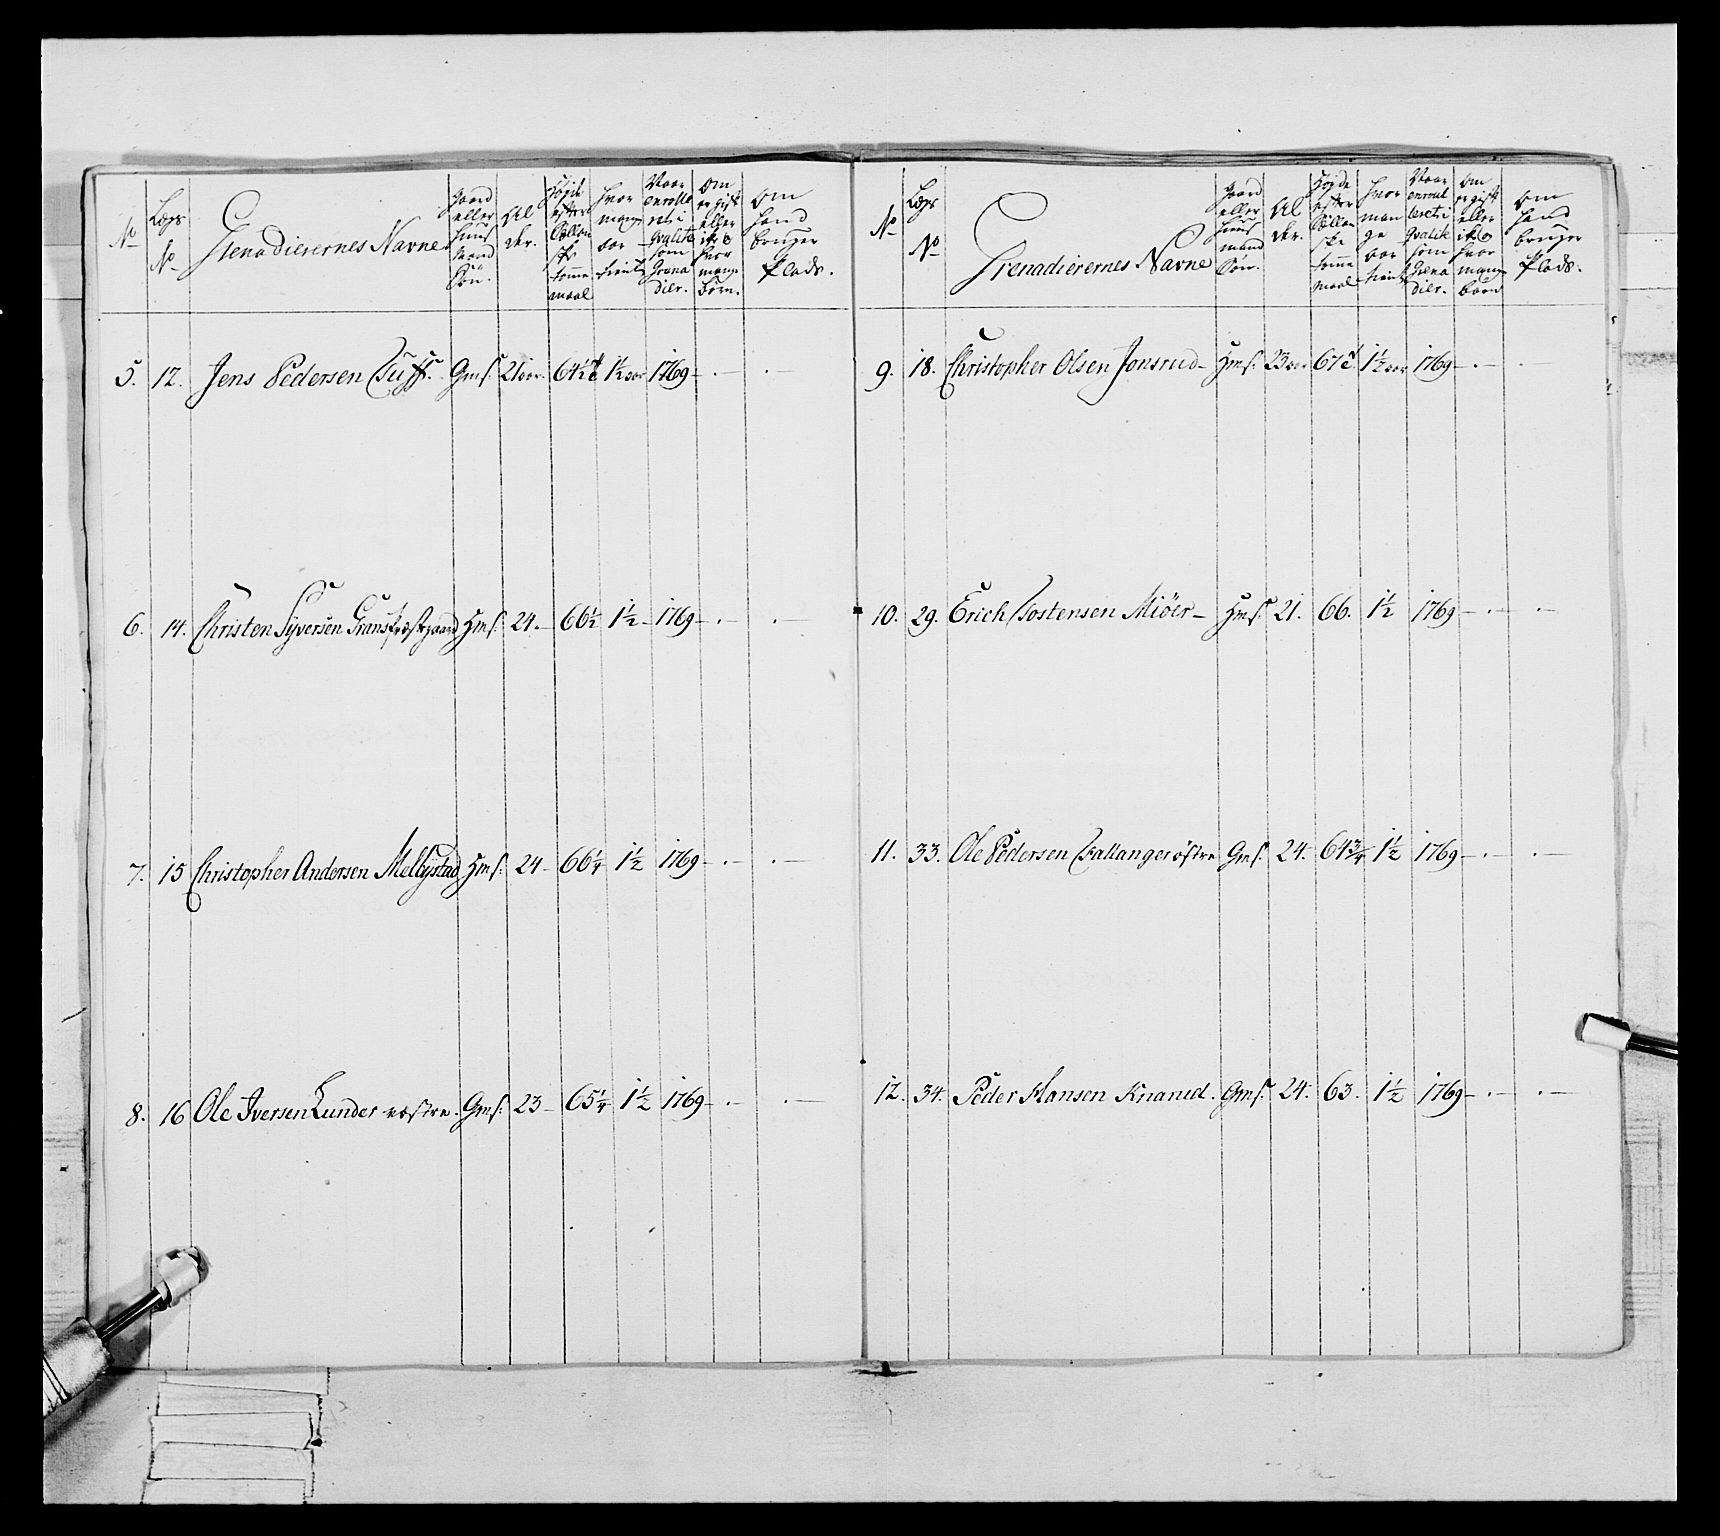 No
Lægs No
Grenadierernes Navne
Gaard eller Huusmand Søn.
Alder.
Højde efter Tommemaal
Hvor mange aar tient
Naar enrolleret i Qvalitet som Grenadier.
Om er gift eller ik og hvor mange Børn.
Om hand bruger Plads.
5. 12. Jens Pedersen Tuff. Gms. 21 aar. 64½ t 1½ aar 1769 - . - . -
6. 14. Christen Syversen Grans Præstegaard Hms. 24. - 66½ 1½ - 1769 - . - . -
7. 15 Christopher Andersen Melbystad Hms. 24 - 66¼ 1½ 1769 - . - . -
8. 16 Ole Iversen Lunder væstre. Gms. 23 - 65¼ 1½ 1769 - . - . -
No
Lægs No
Grenadierernes Navne
Gaard eller Huusmand Søn.
Alder.
Højde efter Tommemaal
Hvor mange aar tient
Naar enroulleret i Qvalitet som Grenadier.
Om er gift eller ik og hvor mange Børn
Om hand bruger Plads.
9. 18. Christopher Olsen Jonsrud - Hms. 23 aar 67 t 1½ aar 1769 - . - . -
10. 29. Erich Tostensen Miöer - Hms. 21. 66. 1½ 1769 - . - . -
11. 33. Ole Pedersen Fallanger östre Gms. 24. 64¾ 1½ 1769 - . - . -
12. 34. Peder Hansen Knarud. Gms. 24. 63. 1½ 1769 - . - . -